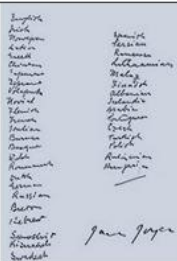 English
Irish
Norwegian
Latin
Greek
Chinese
Japanese
Esperanto
Volapuk
Novial
Flemish
French
Italian
Burmese
Basque
Welsh
Roumansch
Dutch
German
Russian
Breton
Hebrew
Sanskrit
Kisuaheli
Swedish
Spanish
Persian
Rumanian
Lithuanian
Malay
Finnish
Albanian
Icelandic
Arabic
Portuguese
Czech
Turkish
Polish
Ruthenian
Hungarian
James Joyce